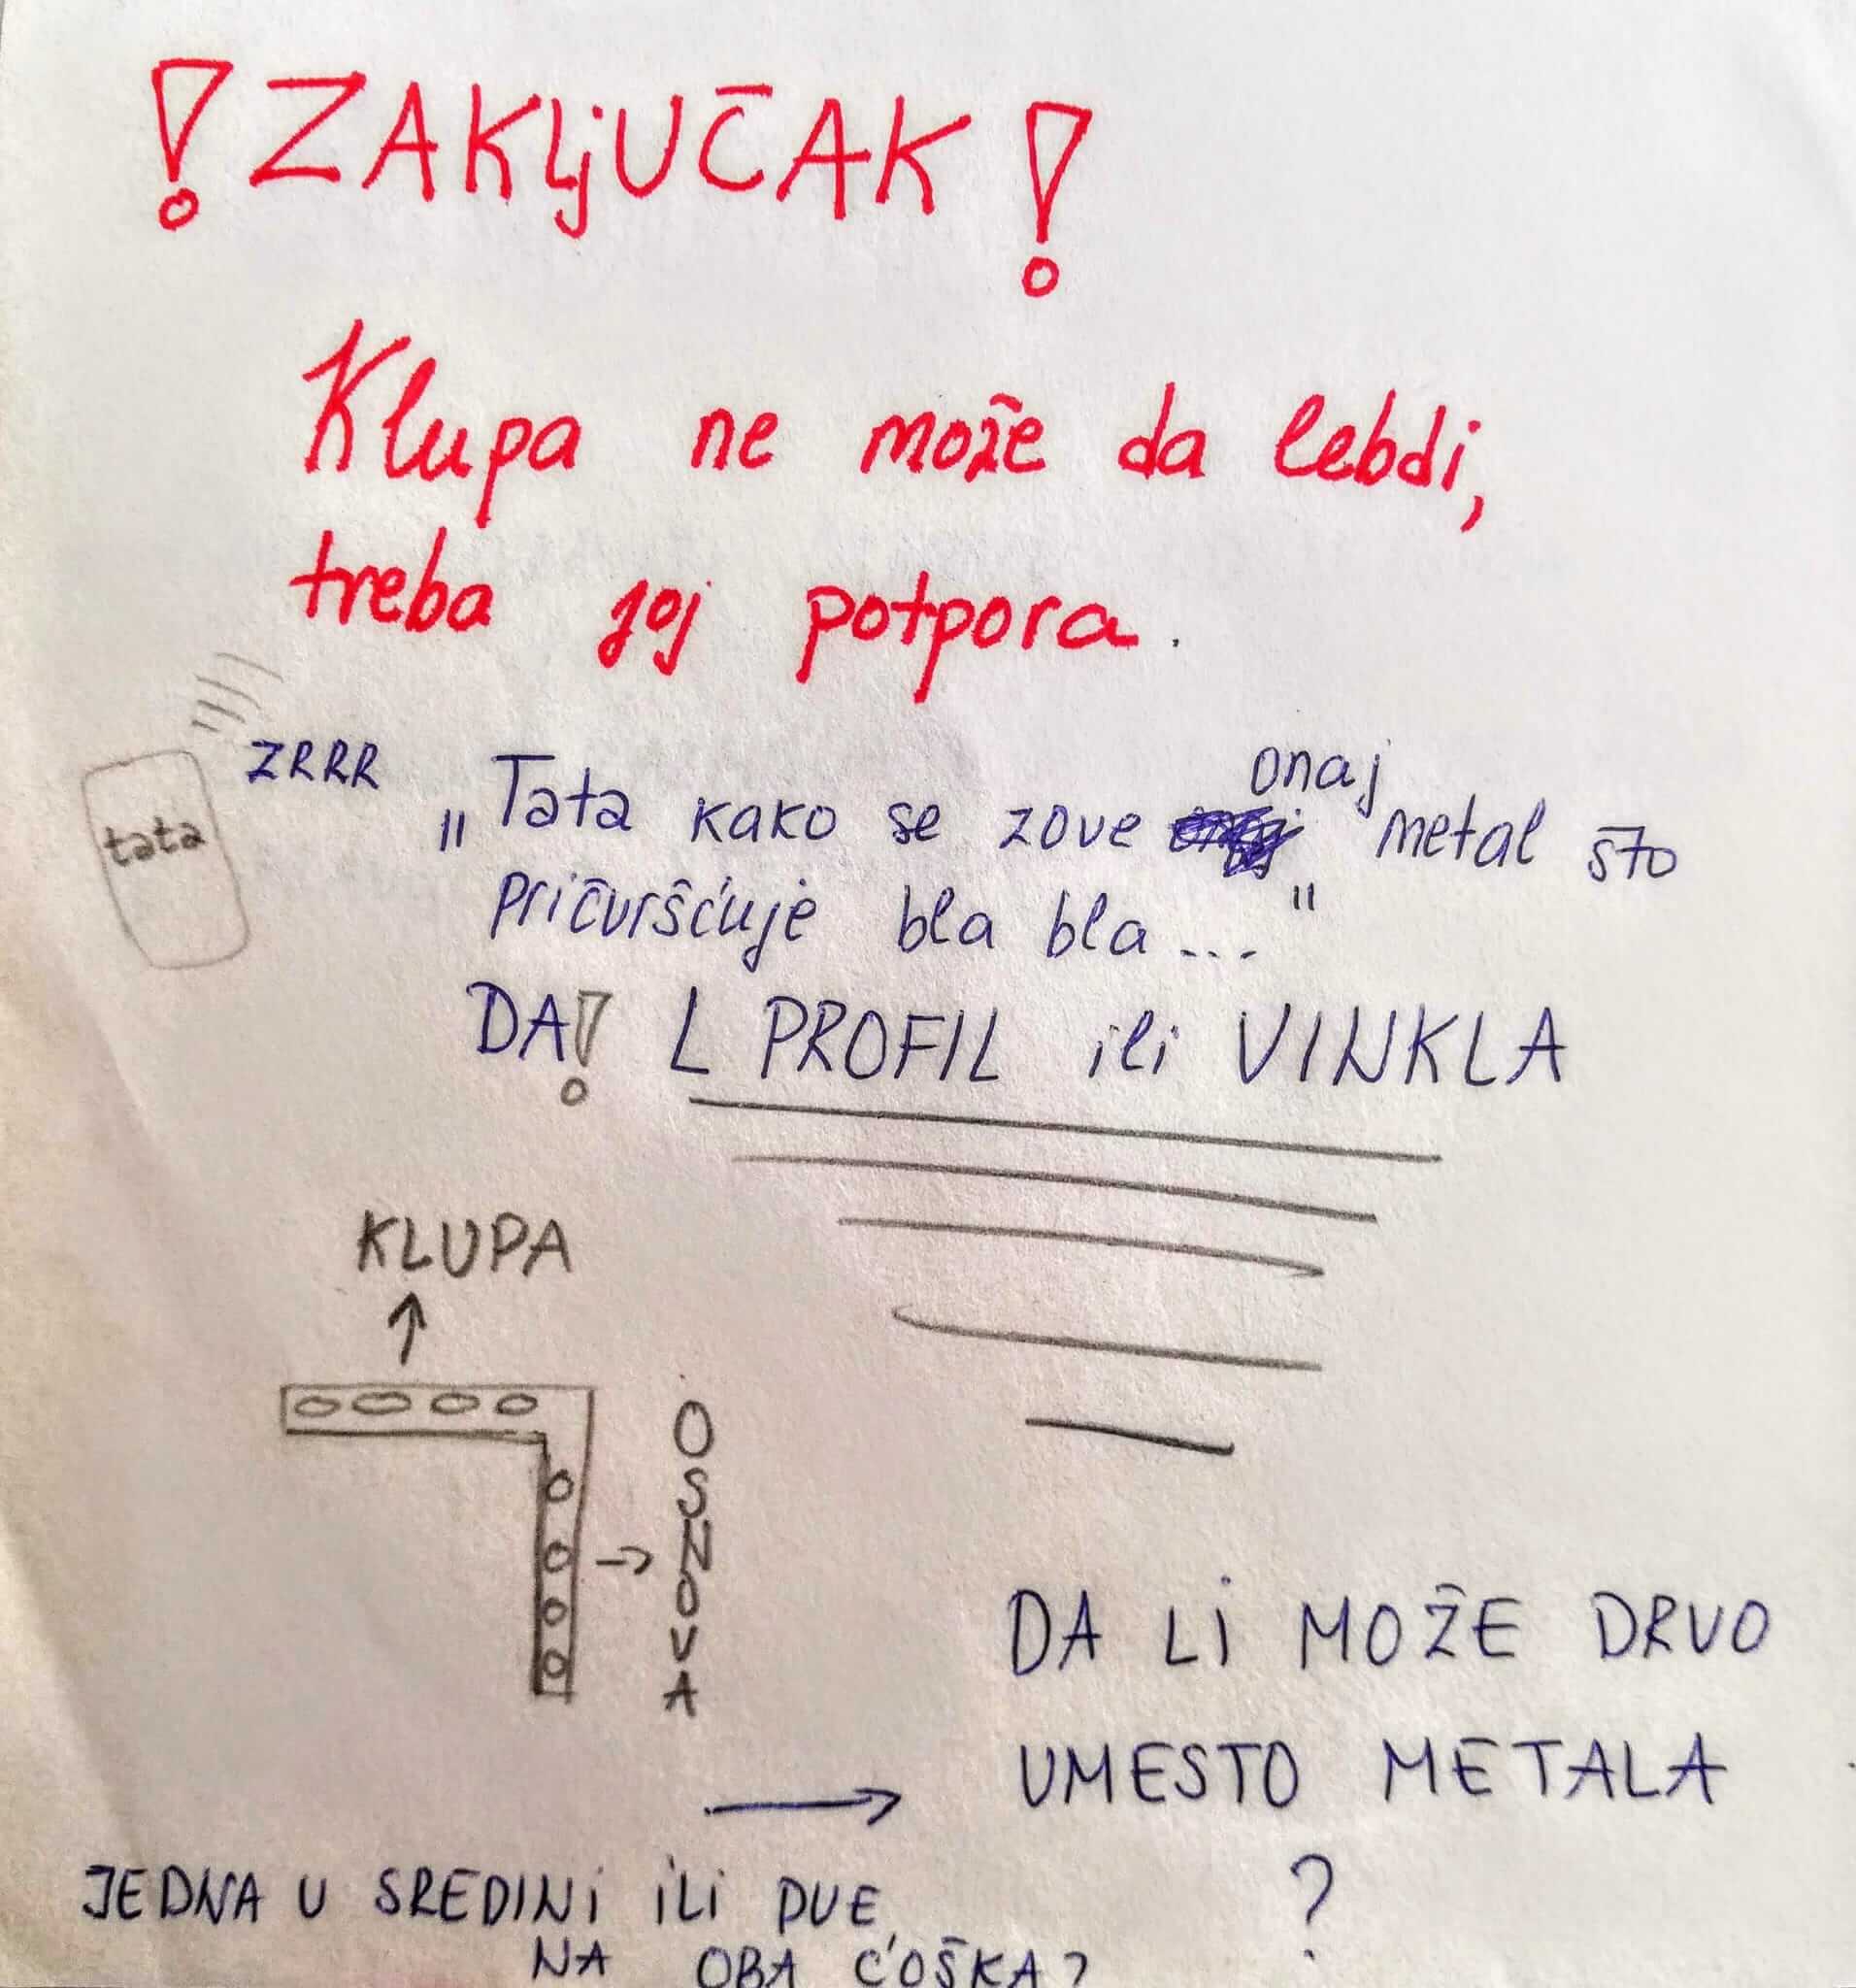 ! ZAKljUČAK !
Klupa ne može da lebdi,
treba joj potpora.
tata
ZRRR
„Tata kako se zove onaj metal što
pričvršćuje bla bla..."
DA! L PROFIL ili VINKLA
KLUPA
↑
→ OSNOVA
DA LI MOŽE DRVO
→ UMESTO METALA
?
JEDNA U SREDINI ILI DVE
NA OBA ĆOŠKA?